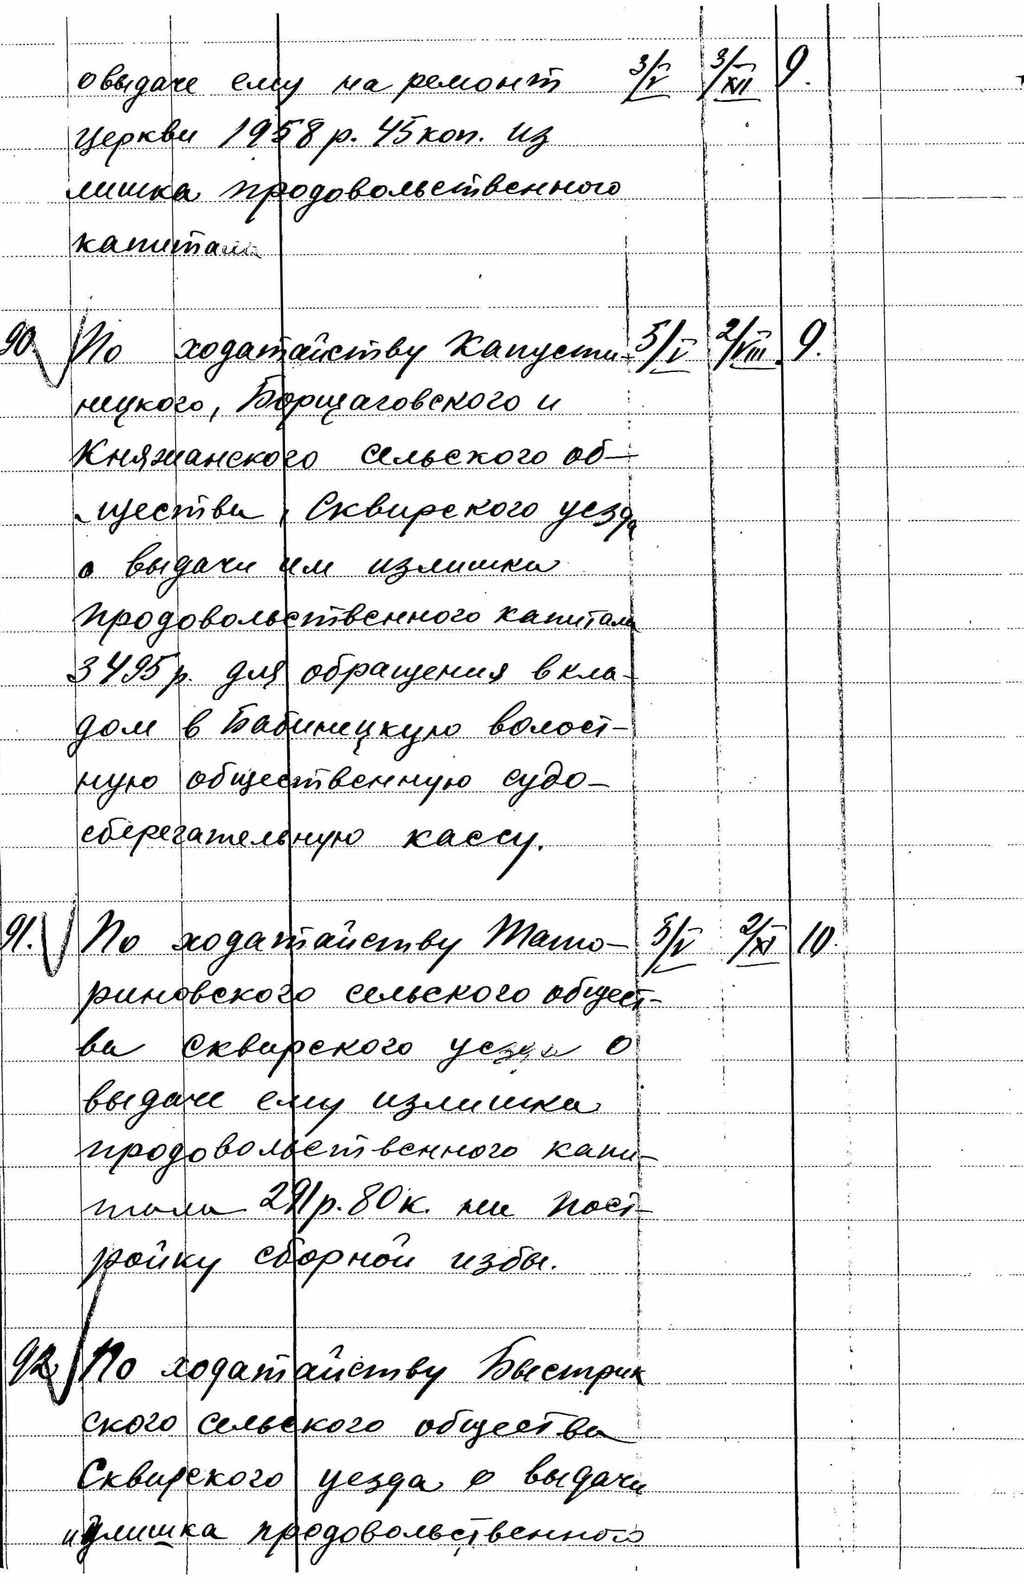 о выдаче ему на ремонт 3/V 3/XII 9.
церкви 1958 р. 45 коп. из
лишка продовольственного
капитала
90. По ходатайству Капусти- 5/V 2/VIII 9.
нецкого, Борщаговского и
Княжанского сельского об-
щества, Сквирского уезда
о выдачи им излишка
продовольственного капитала
3495 р. для обращения вкла-
дом в Бабинецкую волост-
ную общественную судо-
сберегательную кассу.
91. По ходатайству Тато- 5/V 2/XI 10.
риновского сельского общест-
ва Сквирского уезда о
выдаче ему излишка
продовольственного капи-
тала 291 р. 80 к. на пост-
ройку сборной избы.
92. По ходатайству Быстрик
ского сельского общества
Сквирского уезда о выдачи
излишка продовольственного